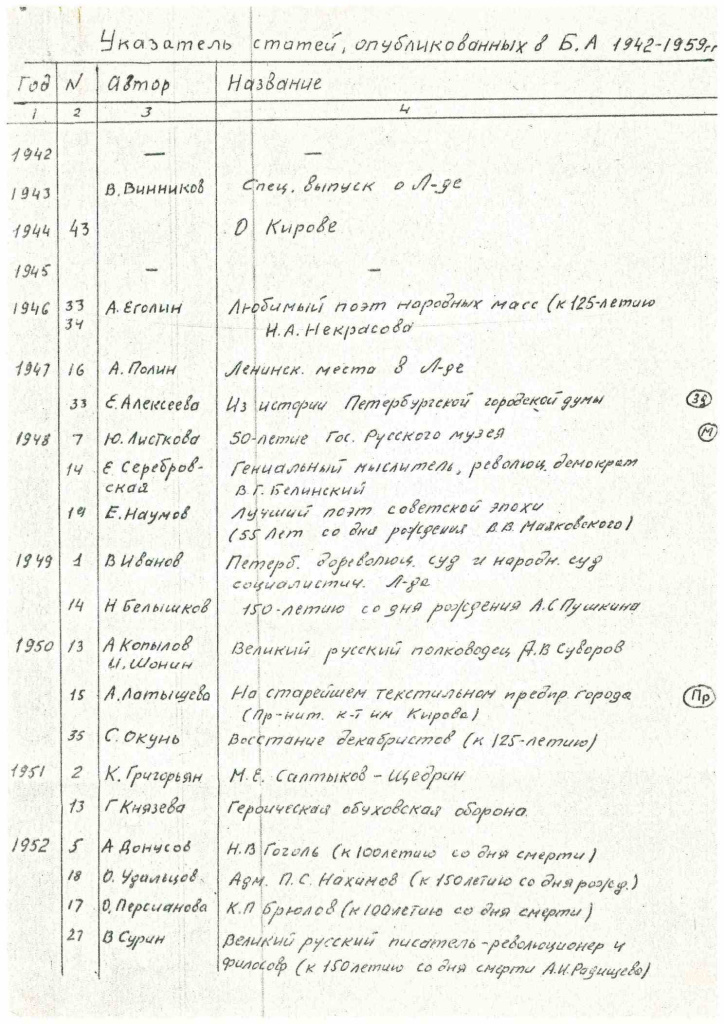 Указатель статей, опубликованных в Б.А 1942-1959гг
Год N Автор Название
1 2 3 4
1942 — —
1943 В. Винников Спец. выпуск о Л-де
1944 43 О Кирове
1945 — —
1946 33 А. Еголин Любимый поэт народных масс (к 125-летию
34 Н.А. Некрасова
1947 16 А. Полин Ленинск. места в Л-де
33 Е. Алексеева Из истории Петербургской городской думы (Зд)
1948 7 Ю. Листкова 50-летие Гос. Русского музея (М)
14 Е Серебров- Гениальный мыслитель, революц. демократ
ская В.Г. Белинский
19 Е. Наумов Лучший поэт советской эпохи
(55 лет со дня рождения В.В. Маяковского)
1949 1 В Иванов Петерб. дореволюц. суд и народн. суд
социалистич. Л-да
14 Н Белышков 150-летию со дня рождения А.С Пушкина
1950 13 А Копылов Великий русский полководец А.В Суворов
И. Шонин
15 А. Латышева На старейшем текстильном предпр. города (Пр)
(Пр-нит. к-т им Кирова)
35 С. Окунь Восстание декабристов (к 125-летию)
1951 2 К. Григорьян М.Е. Салтыков-Щедрин
13 Г Князева Героическая обуховская оборона.
1952 5 А Донусов Н.В Гоголь (к 100летию со дня смерти)
18 О. Удальцов Адм. П.С. Нахимов (к 150летию со дня рожд.)
17 О, Персианова К.П Брюлов (к 100летию со дня смерти)
27 В Сурин Великий русский писатель-революционер и
философ (к 150летию со дня смерти А.Н. Радищева)